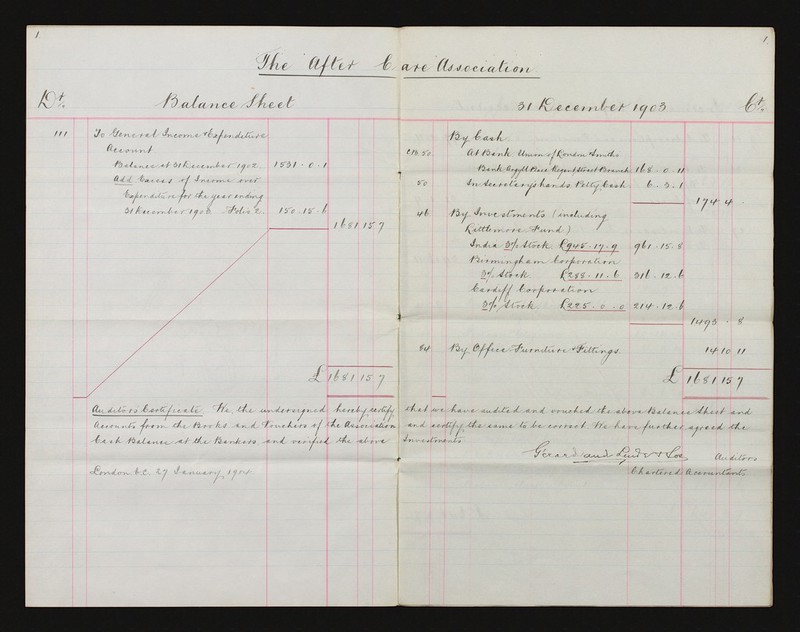 1
1
The After Care Association
Dr.
Balance Sheet
31 December 1903
Cr.
111 To General Income & Expenditure
Account
Balance at 31 December 1902 1531 - 0 - 1
Add Excess of Income over
Expenditure for the year ending
31 December 1903 Folio 2 150 . 15 . 6
1681 15 7
£ 1681 15 7
By Cash
50 At Bank Union of London Smiths
Bank Argyll Place Regent Street Branch 168 . 0 . 11
50 In Secretary's hands, Petty Cash 6 . 3 . 1
174 4 .
46 By Investments (including
Lettsmore Fund)
India 3% Stock £945 . 17 . 9 961 . 15 . 8
Birmingham Corporation
3% Stock £288 . 11 . 6 316 . 12 . 6
Cardiff Corporation
3% Stock £225 . 0 . 0 214 . 12 . 6
1493 . 8
84 By Office Furniture & Fittings 14 10 11
£ 1681 15 7
Auditors Certificate. We, the undersigned hereby certify that we have audited and vouched the above Balance Sheet and
Accounts from the Books and Vouchers of the Association and certify the same to be correct We have further agreed the
Cash Balance at the Bankers and verified the above Investments.
Gerard and Auditors
London E.C. 27 January, 1904 Chartered Accountants